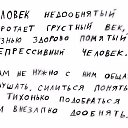 ЛОВЕК НЕДООБНЯТЫЙ
РОТАЕТ ГРУСТНЫЙ ВЕК,
ЗНЬЮ ЗДОРОВО ПОМЯТЫЙ
ЕПРЕССИВНЫЙ ЧЕЛОВЕК.
АМ НЕ НУЖНО С НИМ ОБЩА
УШАТЬ, СИЛИТЬСЯ ПОНЯТЬ
ТИХОНЬКО ПОДОБРАТЬСЯ
ВНЕЗАПНО ДООБНЯТЬ